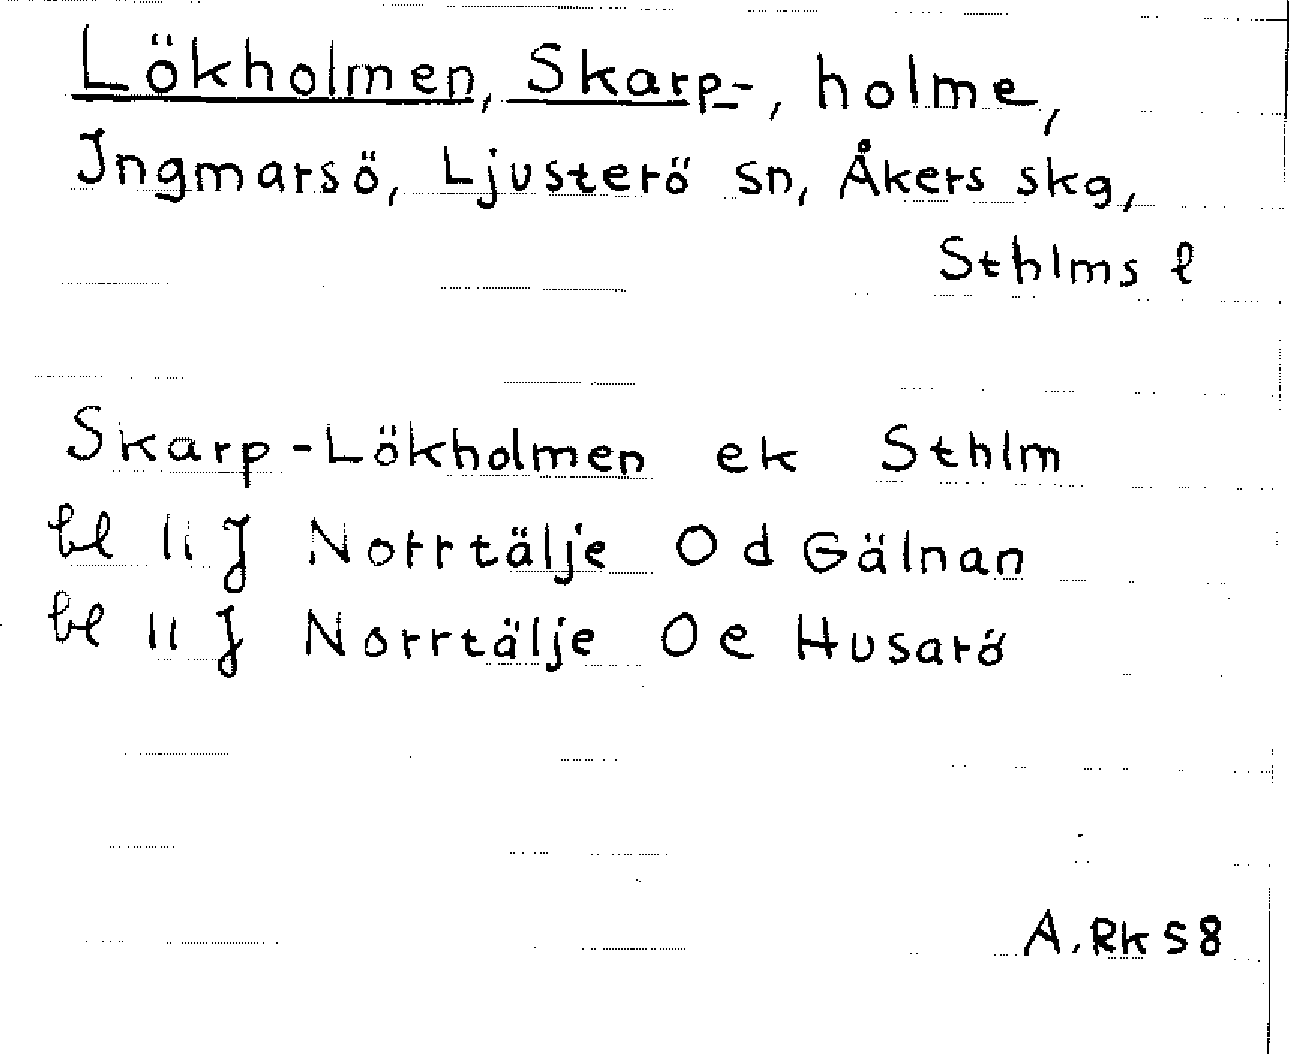 Lökholmen, Skarp-, holme,
Ingmarsö, Ljusterö sn, Åkers skg,
Sthlms l
Skarp-Lökholmen ek Sthlm
bl 11 J Norrtälje 0 d Gälnan
bl 11 J Norrtälje 0 e Husarö
A. Rk S 8